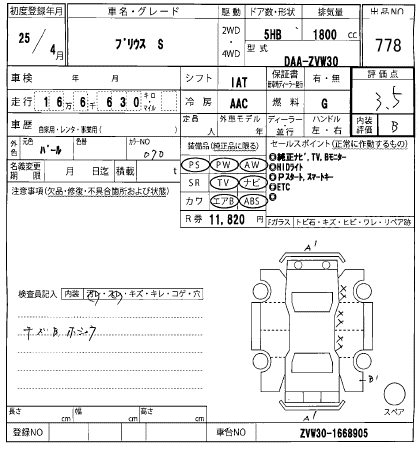 初度登録年月
車名・グレード
駆動
ドア数・形状
排気量
出品NO
25/4月
プリウス S
2WD・4WD
5HB
1800 cc
778
型式
DAA-ZVW30
車検
年 月
シフト
IAT
保証書
有・無
評価点
3.5
走行
16万6千630
キロ・マイル
冷房
AAC
燃料
G
車歴
自家用・レンタ・事業用( )
定員
人
外車モデル
年
ディーラー
並行
ハンドル
左・右
内装評価
B
外色
元色
パール
色替
カラーNO
070
装備品(純正品に限る)
セールスポイント(正常に作動するもの)
名義変更期限
月 日迄
積載
t
PS
PW
AW
◎純正ナビ,TV,Bモニター
◎HIDライト
注意事項(欠品・修復・不具合箇所および状態)
SR
TV
ナビ
◎Pスタート,スマートキー
◎ETC
カワ
エアB
ABS
◎
R券
11,820円
Fガラス
トビ石・キズ・ヒビ・ワレ・リペア跡
A1
検査員記入
内装
ヨゴレ・スレ・キズ・キレ・コゲ・穴
キズB
B1
スペア
A1
長さ
cm
幅
cm
高さ
cm
登録NO
車台NO
ZVW30-1668905